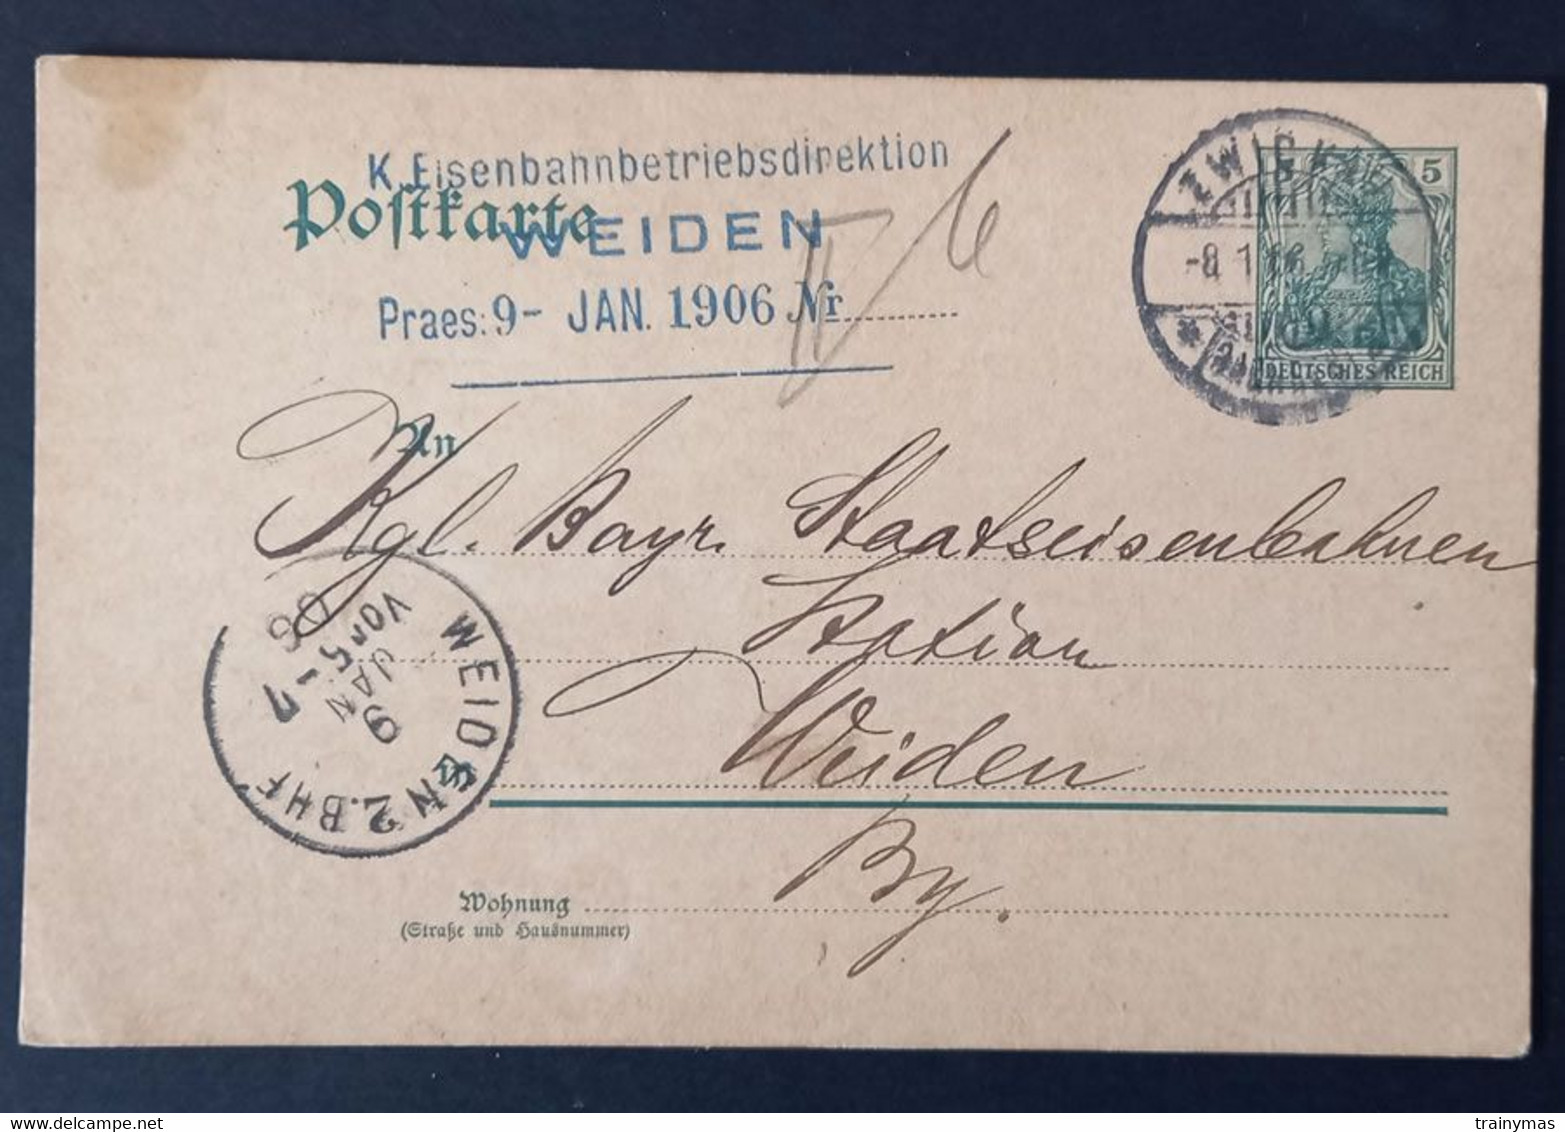 K. Eisenbahnbetriebsdirektion
Postkarte
WEIDEN
Praes: 9- JAN. 1906 Nr
ZWICKAU
-8 1 06
5
DEUTSCHES REICH
An
Kgl. Bayr. Staatseisenbahnen
Station
Weiden
By.
WEIDEN 2. BHF.
9
JAN
VOR
7-
06
in
Wohnung
(Straße und Hausnummer)
trainymas